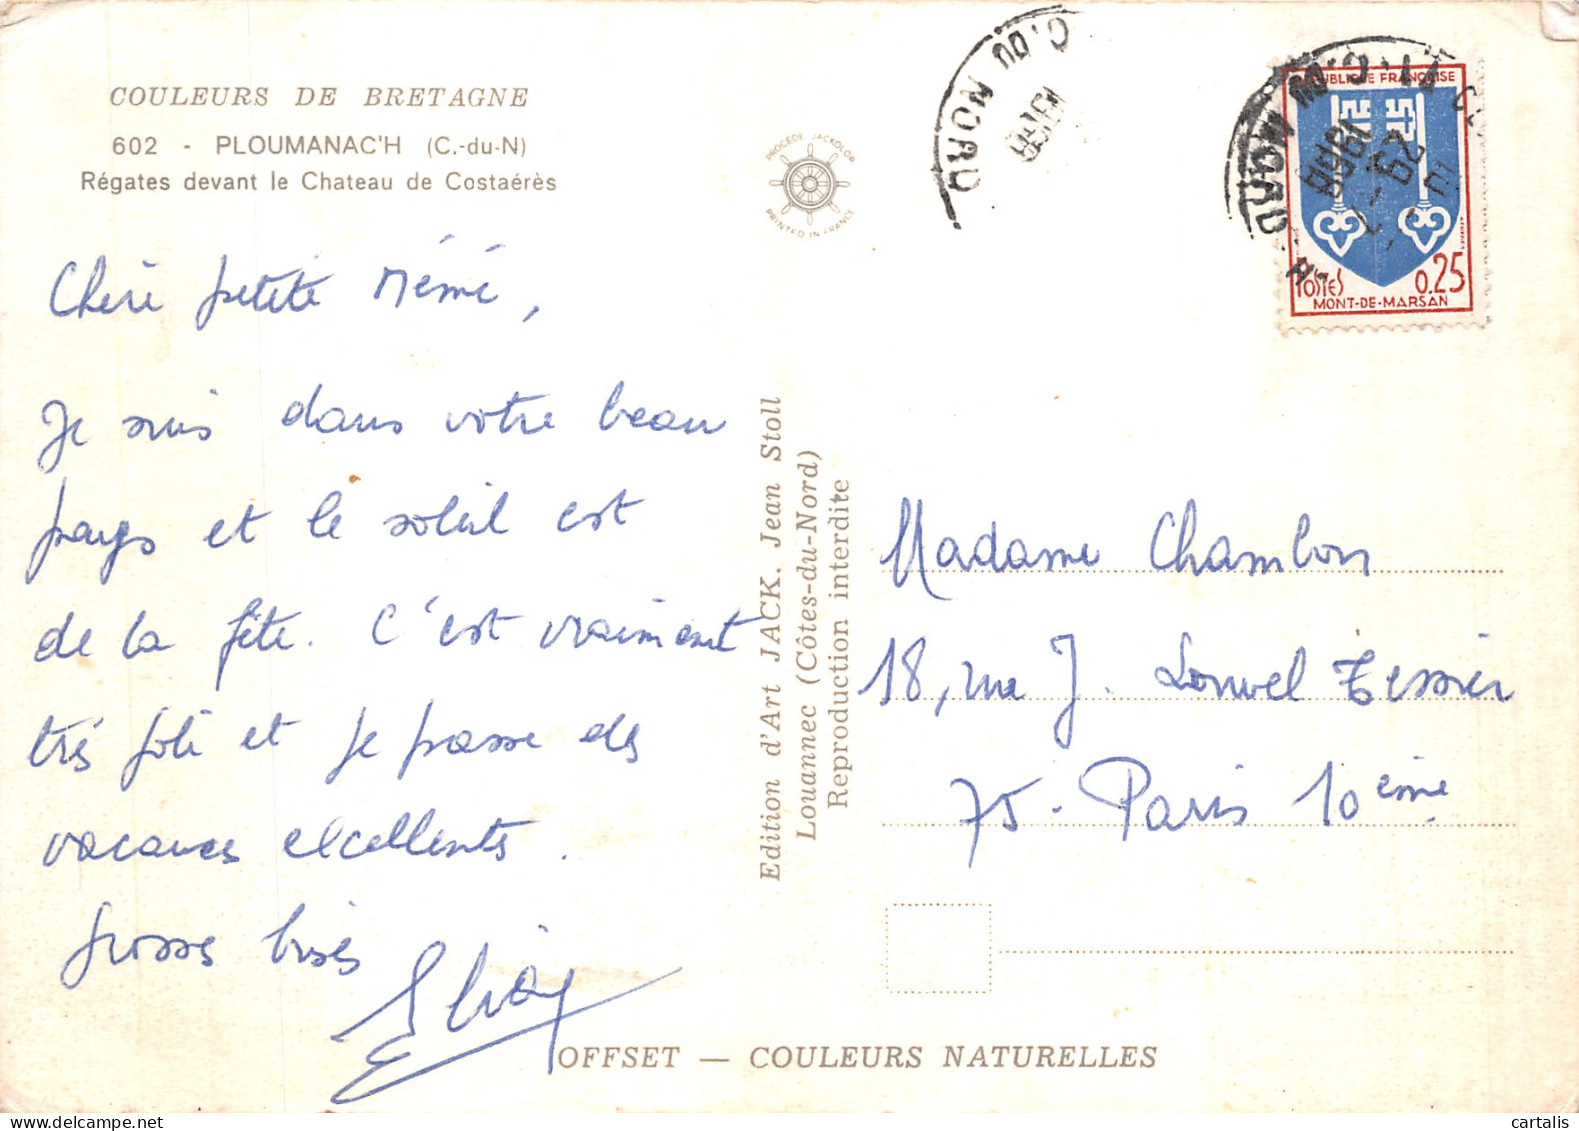 COULEURS DE BRETAGNE
602 - PLOUMANAC'H (C.-du-N)
Régates devant le Chateau de Costaérès
Chère petite Mémé,
Je suis dans votre beau
pays et le soleil est
de la fête. C'est vraiment
très joli et je passe des
vacances excellentes.
grosses bises
PROCEDE JACKOLOR
PRINTED IN FRANCE
Edition d'Art JACK. Jean Stoll
Louannec (Côtes-du-Nord)
Reproduction interdite
C. DU NORD
RÉPUBLIQUE FRANÇAISE
POSTES 0.25
MONT-DE-MARSAN
Madame Chambon
18, rue J. Louvel Tessier
75. Paris 10ème
OFFSET — COULEURS NATURELLES
cartalis